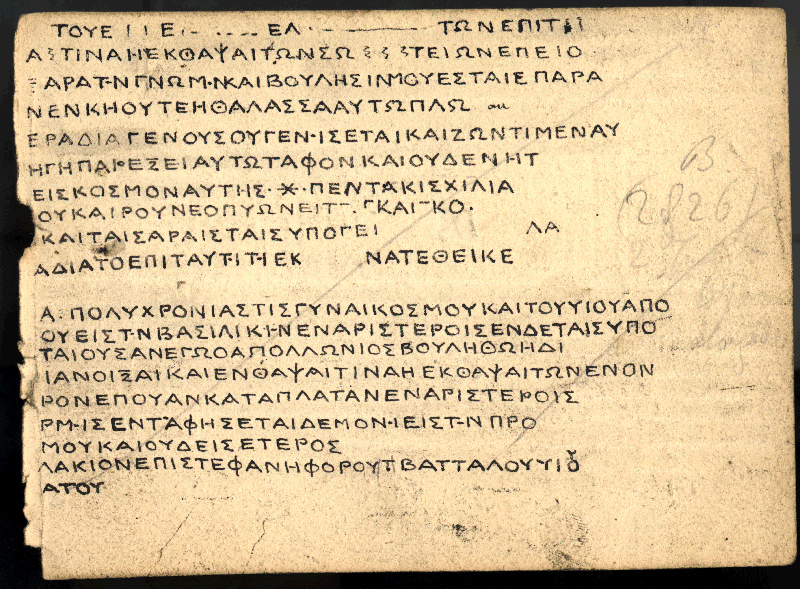 ΤΟΥΕ ΕΛ ΤΩΝΕΠΙΤ
ΑΣΤΙΝΑΗΕΚΘΑΨΑΙΤΩΝΣΩ ΣΤΕΙΩΝΕΠΕΙΟ
ΑΡΑΤΗΝΓΝΩΜΗΝΚΑΙΒΟΥΛΗΣΙΝΜΟΥΕΣΤΑΙΕΠΑΡΑ
ΝΕΝΚΗΟΥΤΕΗΘΑΛΑΣΣΑΑΥΤΩΠΛΩ αυ
ΕΡΑΔΙΑΓΕΝΟΥΣΟΥΓΕΝΗΣΕΤΑΙΚΑΙΖΩΝΤΙΜΕΝΑΥ
ΗΓΗΠΑΡΕΞΕΙΑΥΤΩΤΑΦΟΝΚΑΙΟΥΔΕΝΗΤ
ΕΙΣΚΟΣΜΟΝΑΥΤΗΣ·Ж·ΠΕΝΤΑΚΙΣΧΙΛΙΑ
ΟΥΚΑΙΡΟΥΝΕΟΠΥΩΝΕΙΤ ΓΚΑΙ ΚΟ.
ΚΑΙΤΑΙΣΑΡΑΙΣΤΑΙΣΥΠΟΓΕΙ ΛΑ
ΑΔΙΑΤΟΕΠΙΤΑΥΤΗΤΗΕΚ ΝΑΤΕΘΕΙΚΕ
Α.ΠΟΛΥΧΡΟΝΙΑΣΤΙΣΓΥΝΑΙΚΟΣΜΟΥΚΑΙΤΟΥΥΙΟΥΑΠΟ
ΟΥΕΙΣΤΗΝΒΑΣΙΛΙΚΗΝΕΝΑΡΙΣΤΕΡΟΙΣΕΝΔΕΤΑΙΣΥΠΟ
ΤΑΙΟΥΣΑΝΕΓΩΟΑΠΟΛΛΩΝΙΟΣΒΟΥΛΗΘΩΗΔΙ
ΙΑΝΟΙΣΑΙΚΑΙΕΝΘΑΨΑΙΤΙΝΑΗΕΚΘΑΨΑΙΤΩΝΕΝΟΝ
ΡΟΝΕΠΟΥΑΝΚΑΤΑΠΛΑΤΑΝΕΝΑΡΙΣΤΕΡΟΙΣ
ΡΜΗΣΕΝΤΑΦΗΣΕΤΑΙΔΕΜΟΝΗΕΙΣΤΗΝΠΡΟ
ΜΟΥΚΑΙΟΥΔΕΙΣΕΤΕΡΟΣ
ΛΑΚΙΟΝΕΠΙΣΤΕΦΑΝΗΦΟΡΟΥΤΙΒΑΤΤΑΛΟΥΥΙΟΥ
ΑΤΟΥ
B
(2826)